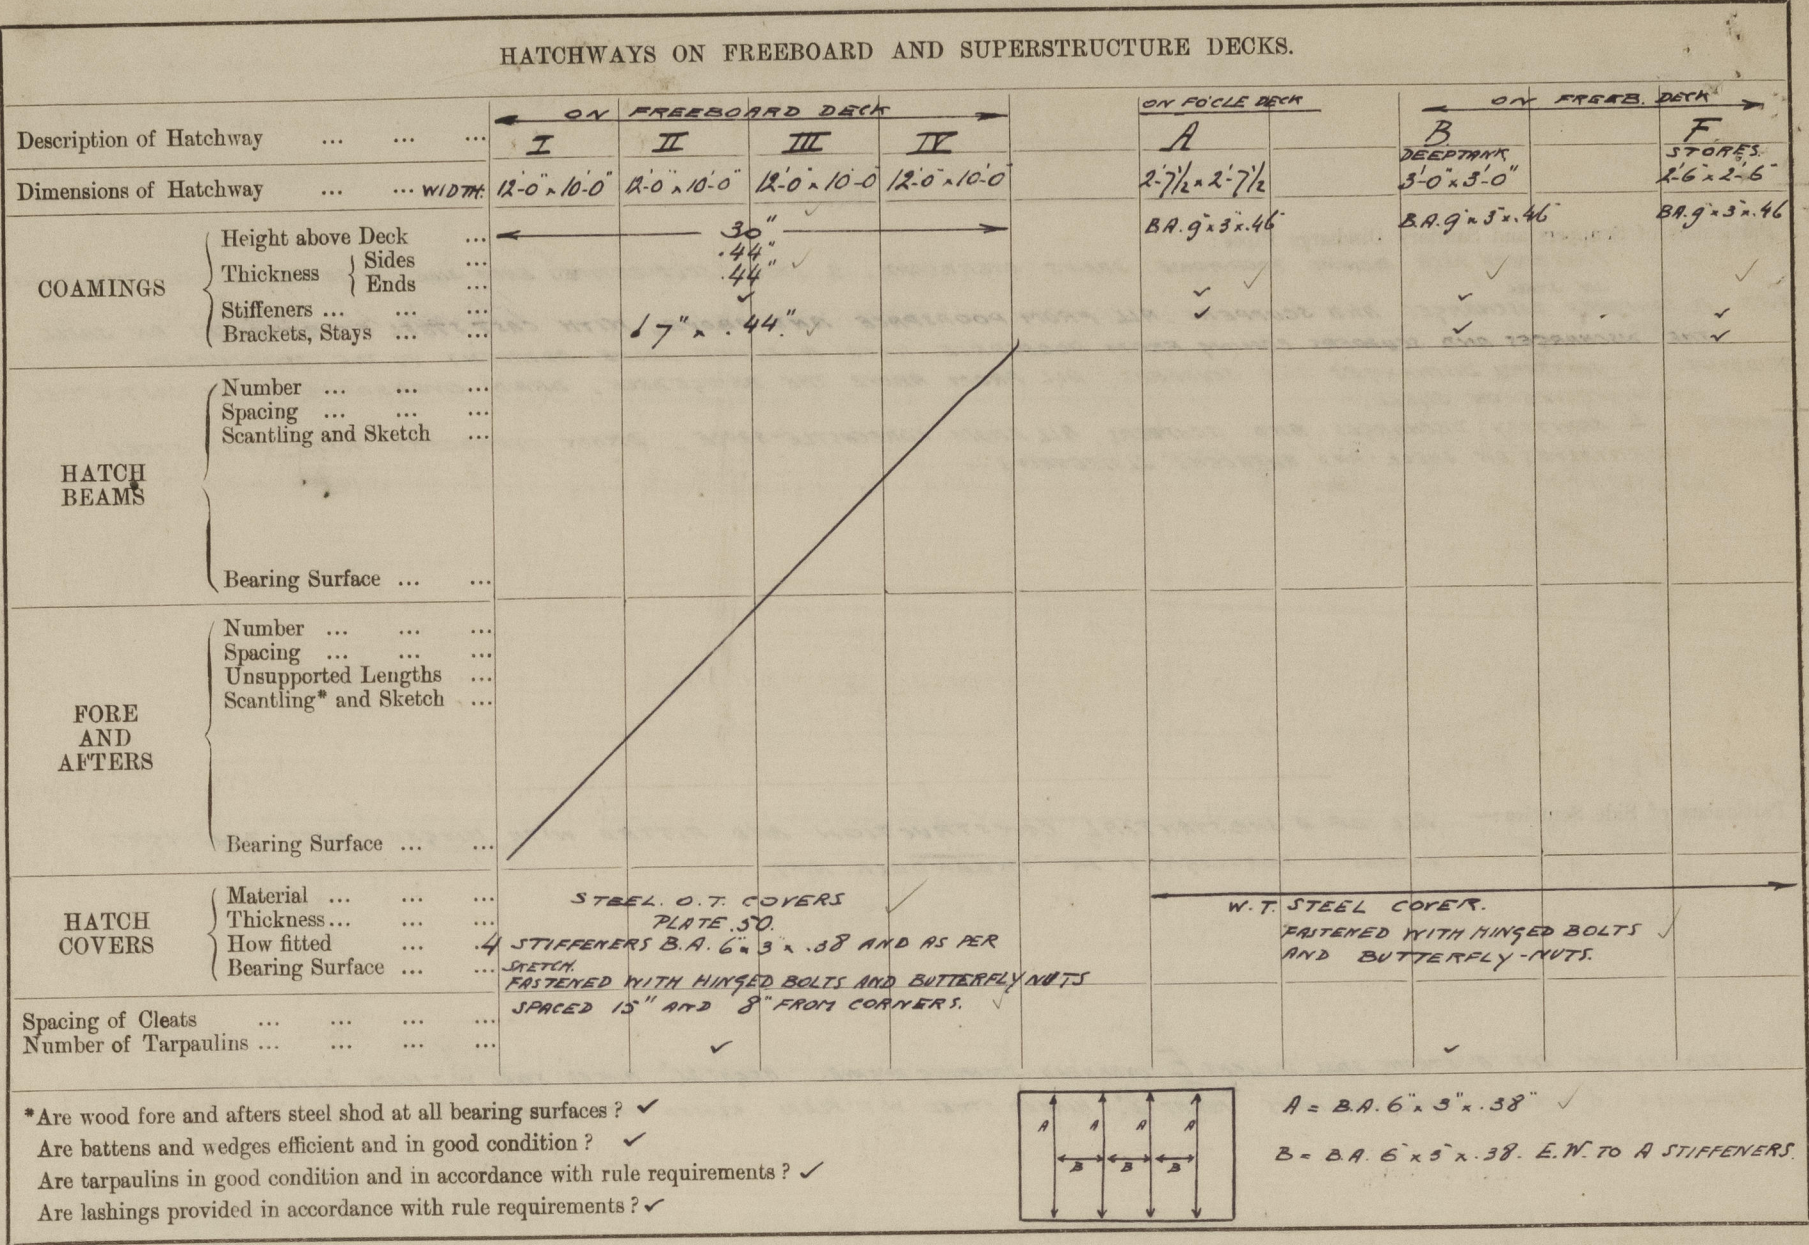 HATCHWAYS ON FREEBOARD AND SUPERSTRUCTURE DECKS.
ON FREEBOARD DECK ON FO'CLE DECK ON FREEB. DECK
Description of Hatchway ... ... ... I II III IV A B F
DEEPTANK STORES.
Dimensions of Hatchway ... ... WIDTH. 12'-0" x 10'-0" 12'-0" x 10'-0" 12'-0" x 10'-0" 12'-0" x 10'-0" 2'-7½ x 2'-7½ 3'-0" x 3'-0" 2'-6" x 2'-6"
COAMINGS
Height above Deck ... 30" ✓ B.A. 9" x 3" x .46" B.A. 9" x 3" x .46" B.A. 9" x 3" x .46
Thickness { Sides ... .44"
Ends ... .44" ✓ ✓ ✓ ✓
Stiffeners ... ... ... ✓ ✓ ✓ ✓
Brackets, Stays ... ... 6 7" x .44" ✓ ✓ ✓ ✓
HATCH BEAMS
Number ... ... ...
Spacing ... ... ...
Scantling and Sketch ...
Bearing Surface ... ...
FORE AND AFTERS
Number ... ... ...
Spacing ... ... ...
Unsupported Lengths ...
Scantling* and Sketch ...
Bearing Surface ... ...
HATCH COVERS
Material ... ... ... STEEL. O.T. COVERS ✓ W.T. STEEL COVER.
Thickness ... ... ... PLATE .50.
How fitted ... .4 STIFFENERS B.A. 6" x 3" x .38 AND AS PER FASTENED WITH HINGED BOLTS ✓
Bearing Surface ... ... SKETCH. AND BUTTERFLY-NUTS.
FASTENED WITH HINGED BOLTS AND BUTTERFLY NUTS
SPACED 15" AND 8" FROM CORNERS. ✓
Spacing of Cleats ... ... ... ...
Number of Tarpaulins ... ... ... ... ✓ ✓
*Are wood fore and afters steel shod at all bearing surfaces ? ✓
Are battens and wedges efficient and in good condition ? ✓
Are tarpaulins in good condition and in accordance with rule requirements ? ✓
Are lashings provided in accordance with rule requirements ? ✓
A A A A
B B B
A = B.A. 6" x 3" x .38" ✓
B = B.A. 6" x 3" x .38. E.W. TO A STIFFENERS.